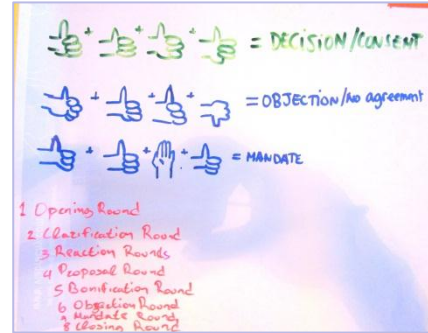 = DECISION/CONSENT
= OBJECTION/No agreement
= MANDATE
1 Opening Round
2 Clarification Round
3 Reaction Rounds
4 Proposal Round
5 Bonification Round
6 Objection Round
7 Mandate Round
8 Closing Round